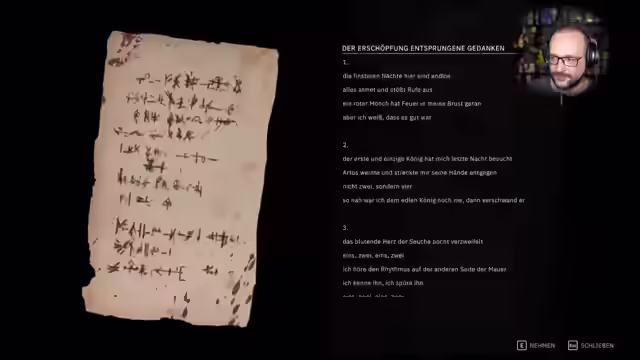 DER ERSCHÖPFUNG ENTSPRUNGENE GEDANKEN
1.
die finsteren Nächte hier sind endlos
alles atmet und stößt Rufe aus
ein roter Mönch hat Feuer in meine Brust getan
aber ich weiß, dass es gut war
2.
der erste und einzige König hat mich letzte Nacht besucht
Artus weinte und streckte mir seine Hände entgegen
nicht zwei, sondern vier
so nah war ich dem edlen König noch nie, dann verschwand er
3.
das blutende Herz der Seuche pocht verzweifelt
eins, zwei, eins, zwei
ich höre den Rhythmus auf der anderen Seite der Mauer
ich kenne ihn, ich spüre ihn
E NEHMEN
Esc SCHLIEßEN